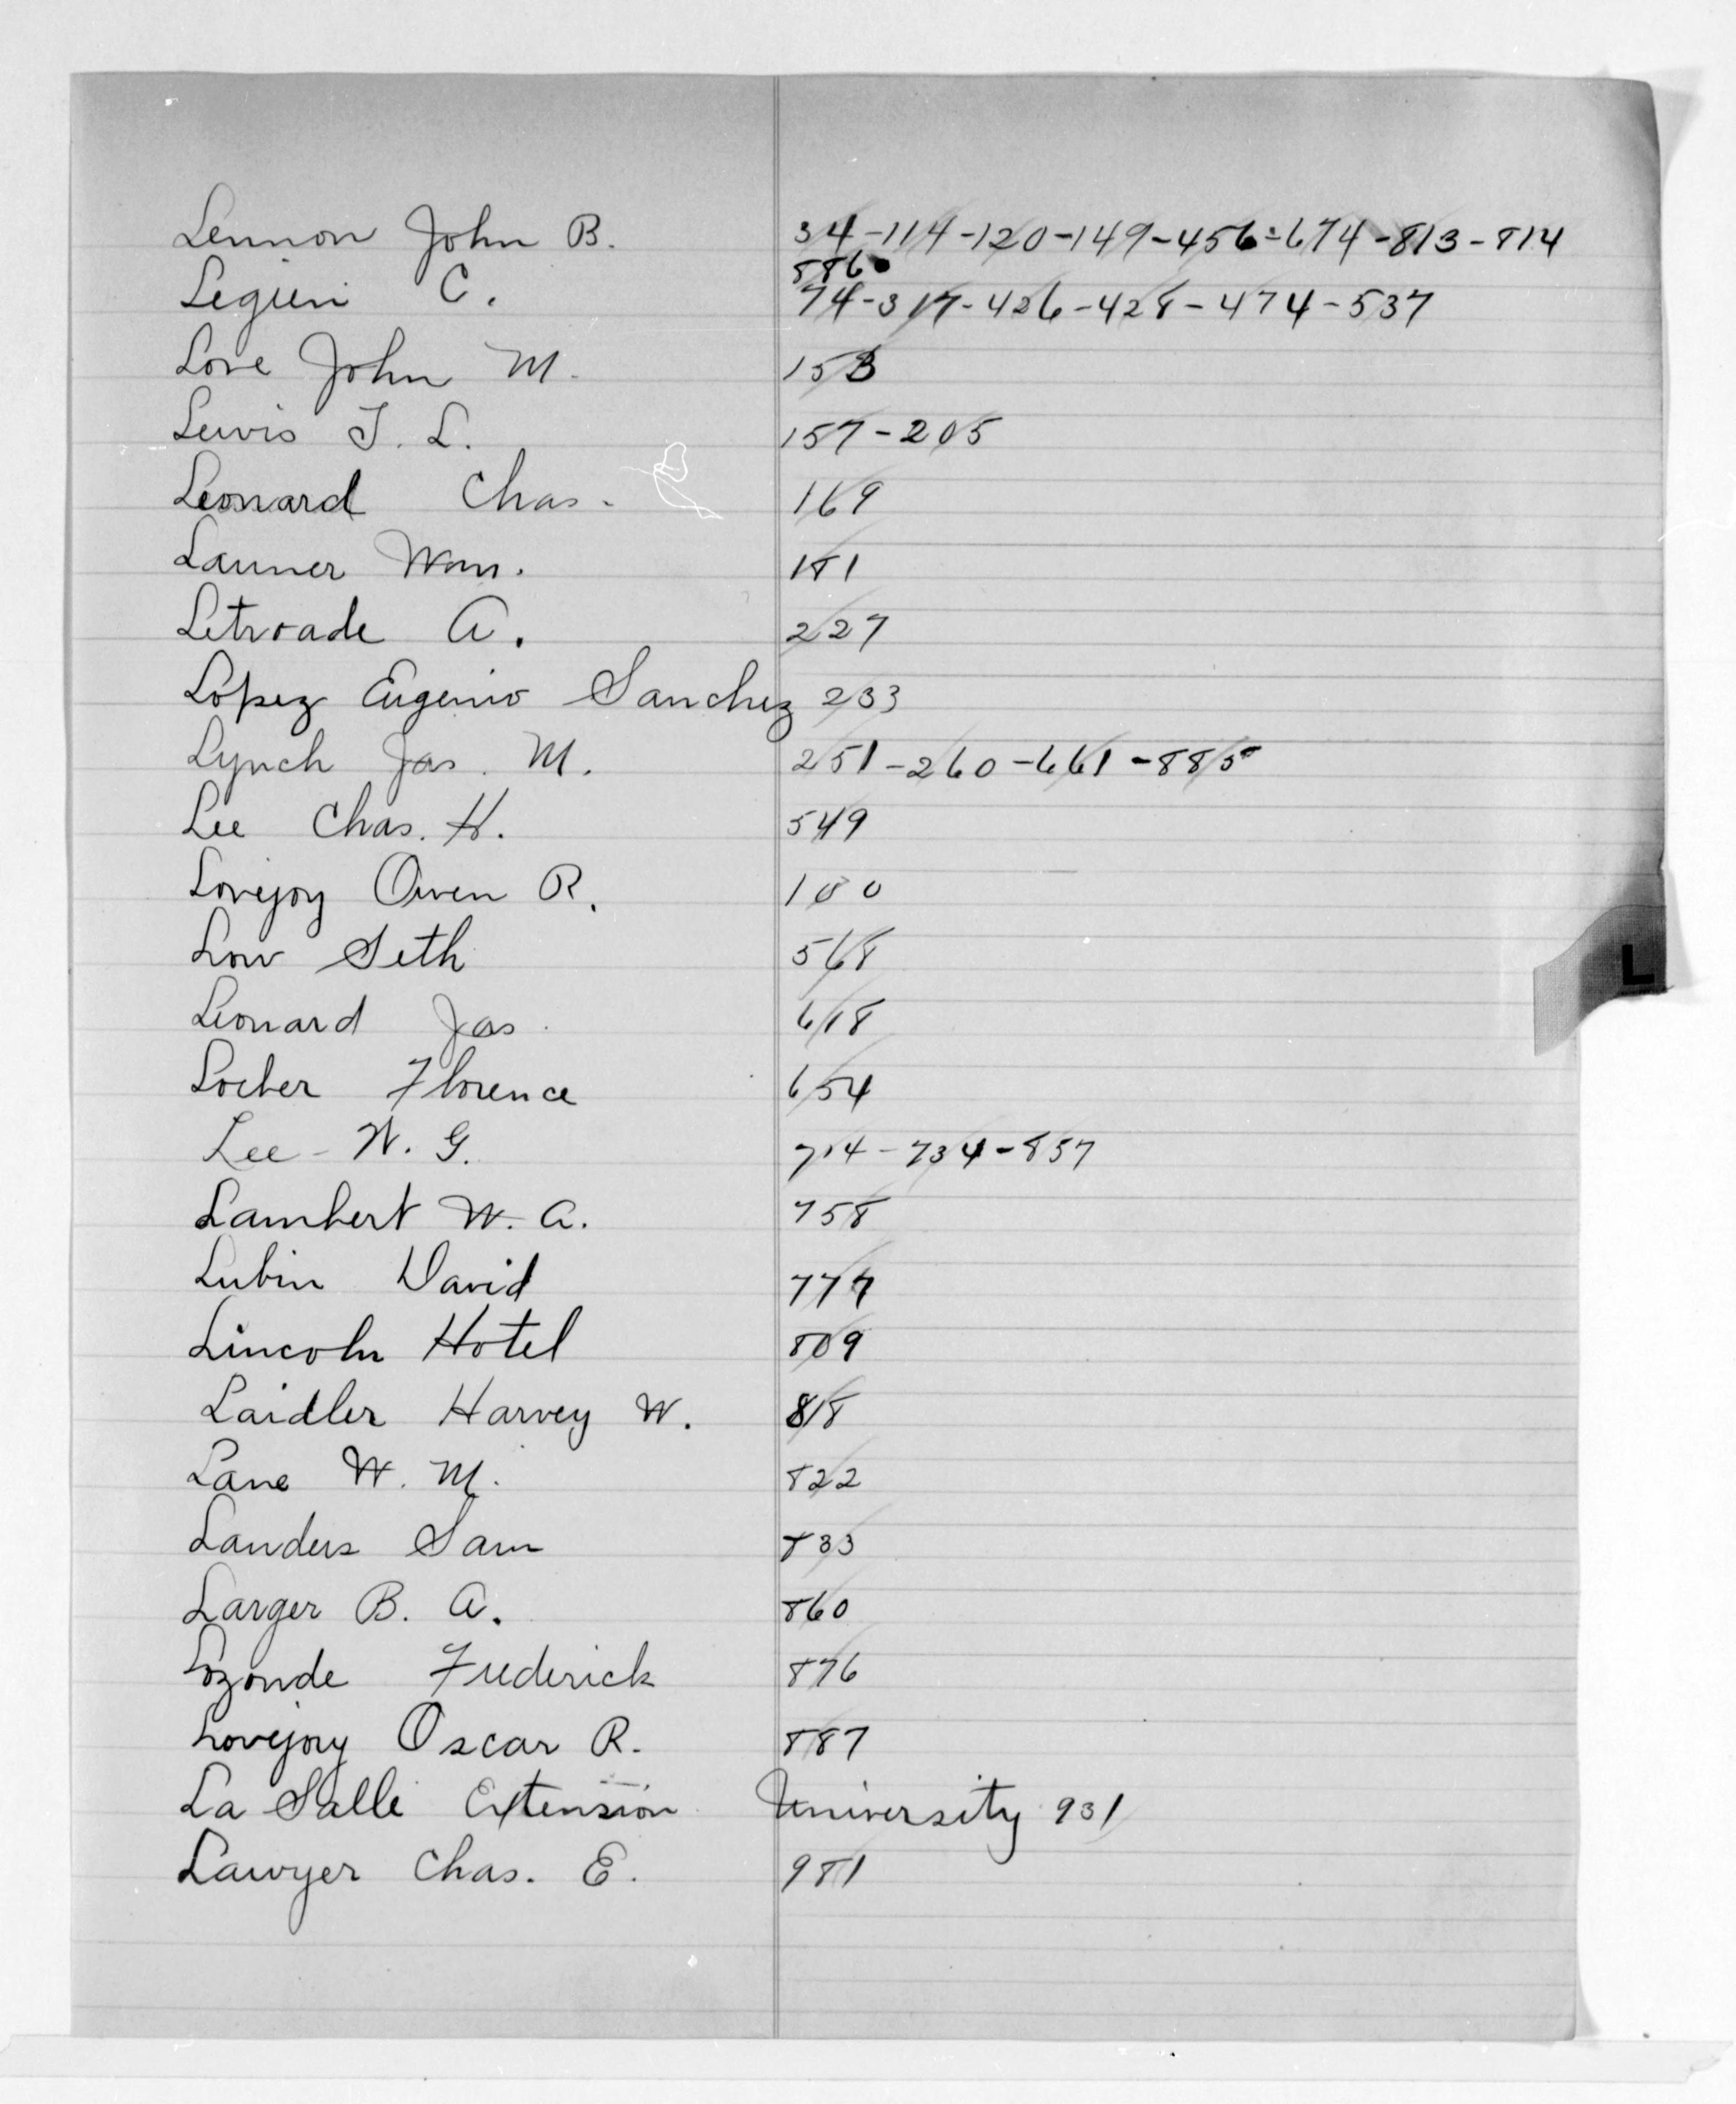 Lennon John B. 34-114-120-149-456-674-813-814
886
Legien C. 74-317-426-428-474-537
Love John M. 153
Lewis T. L. 157-205
Leonard Chas. 169
Launer Wm. 181
Letroade A. 227
Lopez Eugenio Sanchez 233
Lynch Jas. M. 251-260-661-885
Lee Chas. H. 549
Lovejoy Owen R. 100
Low Seth 568
Leonard Jas. 618
Locher Florence 654
Lee - W. G. 714-734-857
Lambert W. A. 758
Lubin David 777
Lincoln Hotel 809
Laidler Harvey W. 818
Lane W. M. 822
Landers Sam 833
Larger B. A. 860
Lozonde Frederick 876
Lovejoy Oscar R. 887
La Salle Extension University 931
Lawyer Chas. E. 981
L